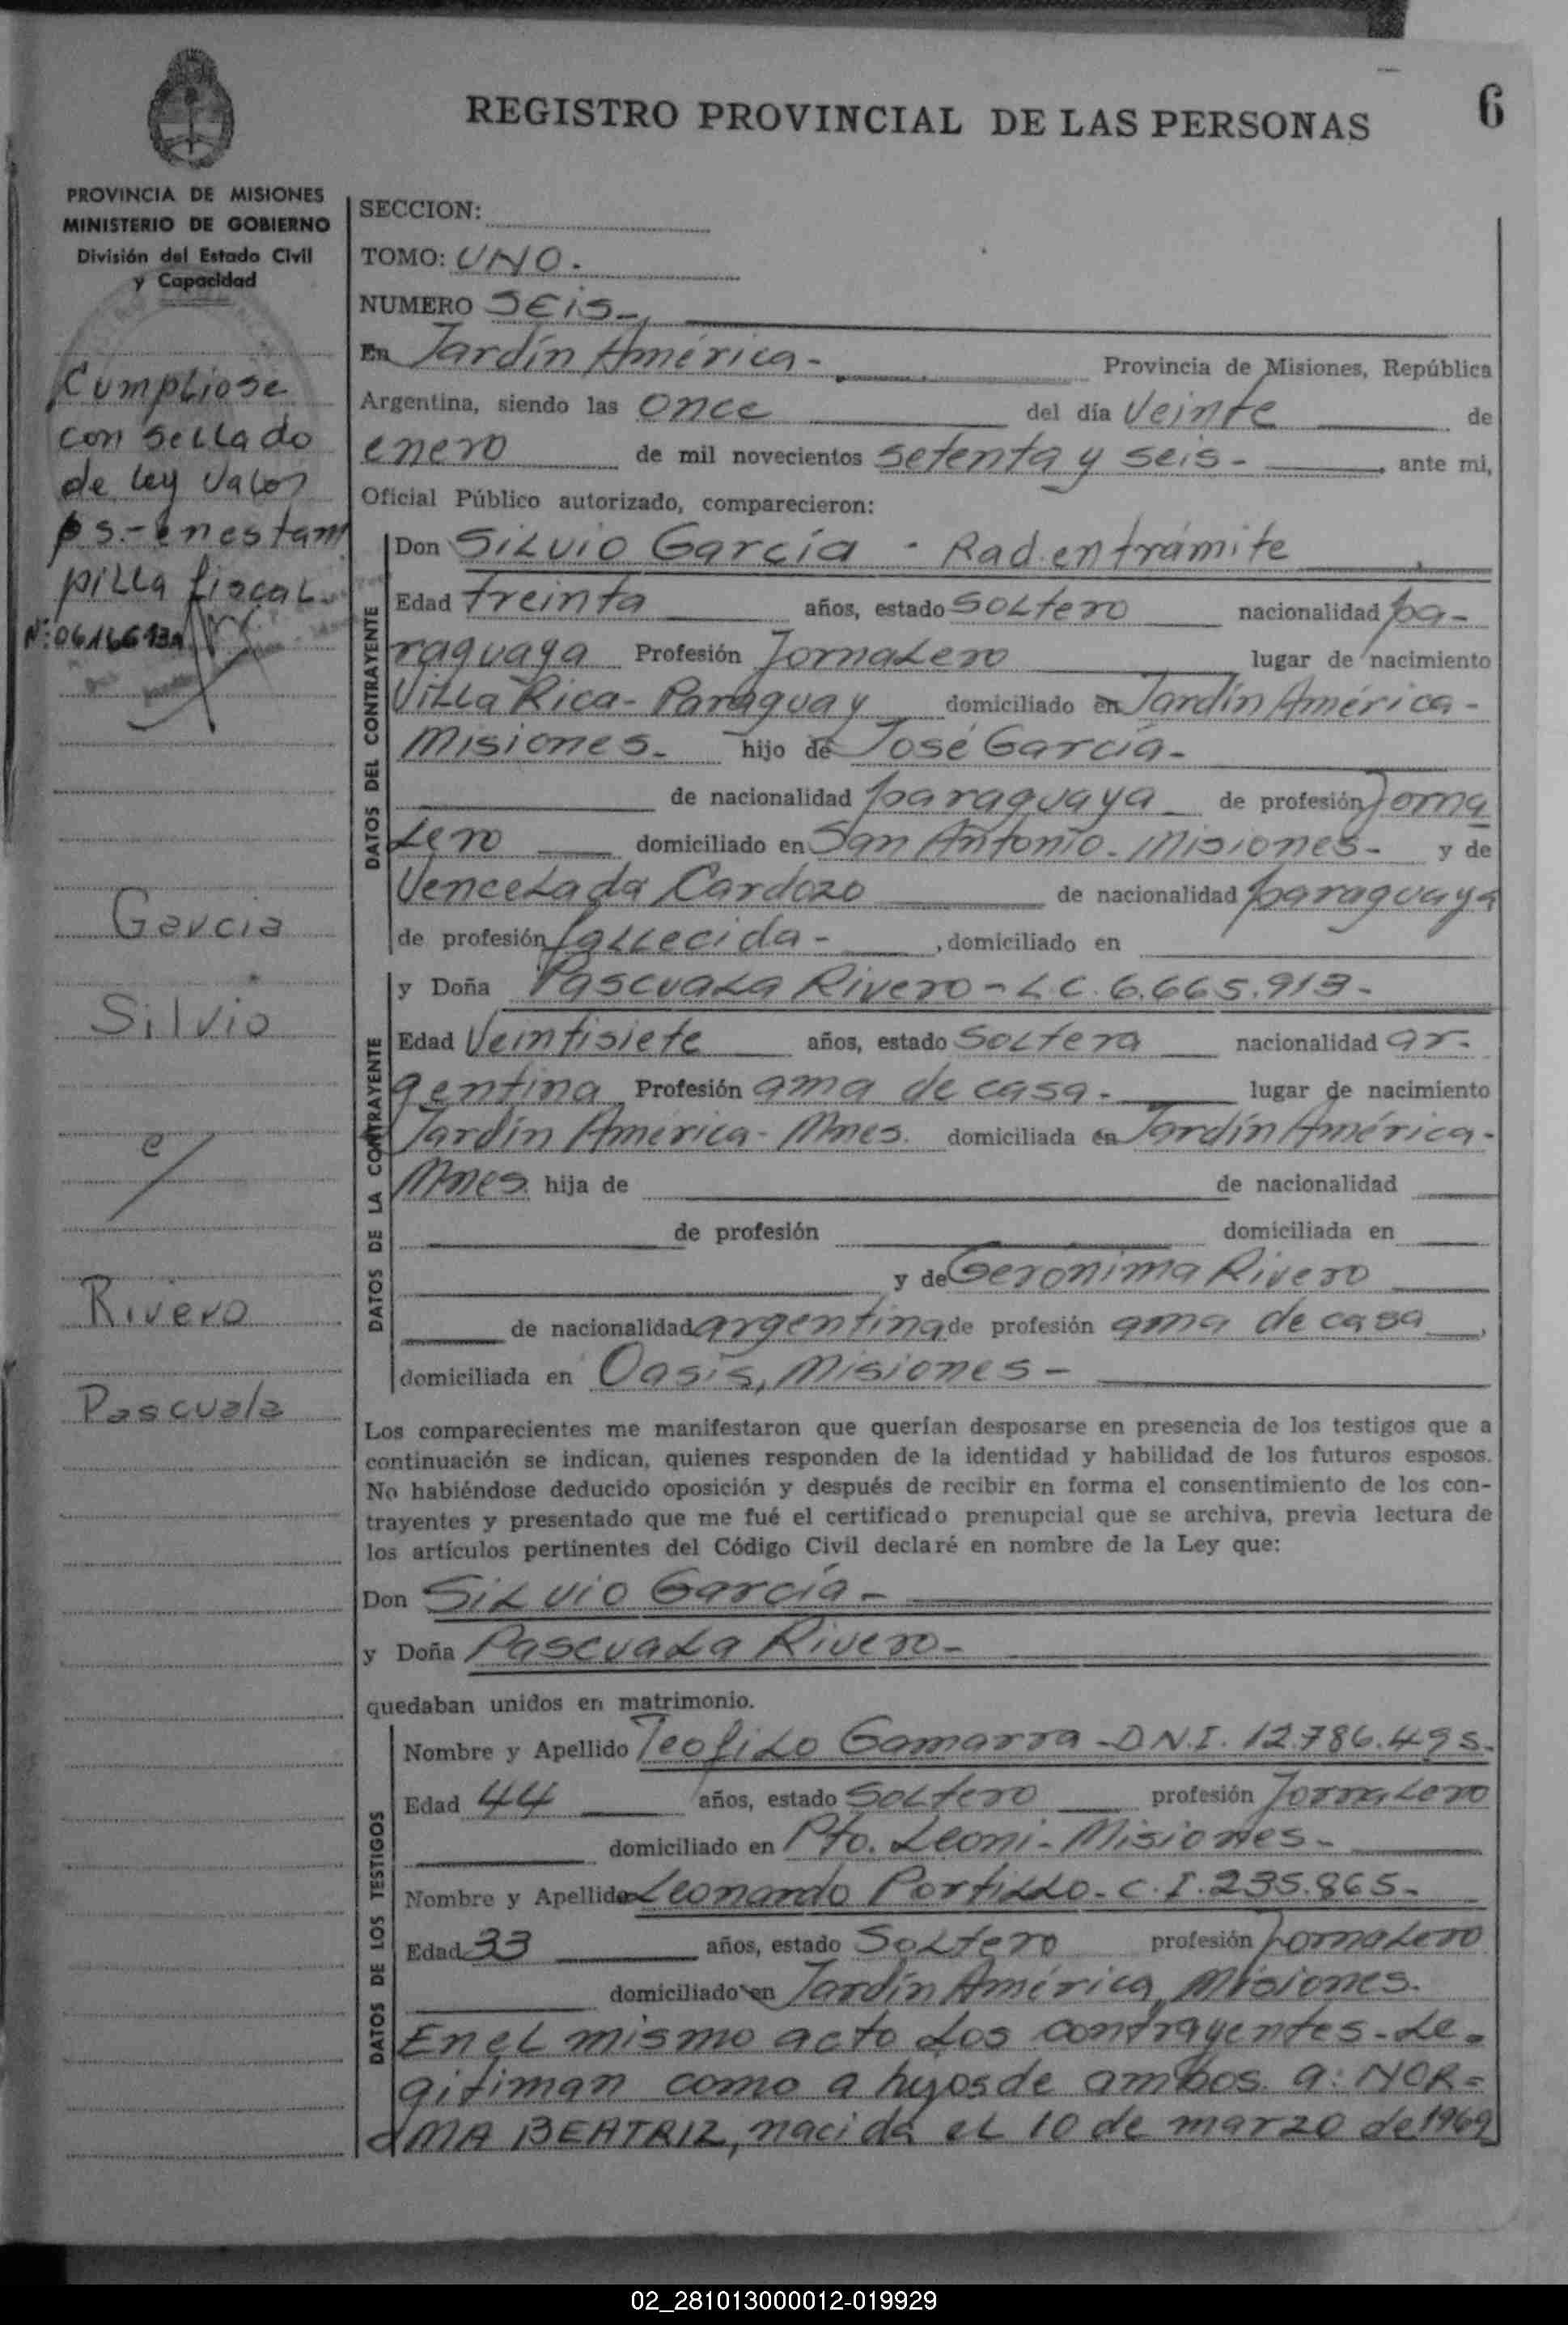 REGISTRO PROVINCIAL DE LAS PERSONAS
6
PROVINCIA DE MISIONES
MINISTERIO DE GOBIERNO
División del Estado Civil
y Capacidad
Cumpliose
con sellado
de ley valor
ps.- en estam
pilla fiscal.
García
Silvio
c/
Rivero
Pascuala
SECCION:
TOMO: UNO.
NUMERO SEIS-,
En Jardín América- Provincia de Misiones, República
Argentina, siendo las once del día Veinte de
enero de mil novecientos setenta y seis- , ante mi,
Oficial Público autorizado, comparecieron:
DATOS DEL CONTRAYENTE
Don Silvio García - Rad. en trámite
Edad treinta años, estado soltero nacionalidad pa-
raguaya Profesión Jornalero lugar de nacimiento
Villa Rica- Paraguay domiciliado en Jardín América-
Misiones- hijo de José García-
de nacionalidad paraguaya de profesión Jorna
lero domiciliado en San Antonio- Misiones- y de
Vencelada Cardozo de nacionalidad paraguaya
de profesión fallecida- , domiciliado en
DATOS DE LA CONTRAYENTE
y Doña Pascuala Rivero- L.C. 6.665.913-
Edad Veintisiete años, estado Soltera nacionalidad ar-
gentina Profesión ama de casa- lugar de nacimiento
Jardín América- Mnes. domiciliada en Jardín América-
Mnes. hija de de nacionalidad
de profesión domiciliada en
y de Geronima Rivero
de nacionalidad argentina de profesión ama de casa ,
domiciliada en Oasis, Misiones-
Los comparecientes me manifestaron que querían desposarse en presencia de los testigos que a
continuación se indican, quienes responden de la identidad y habilidad de los futuros esposos.
No habiéndose deducido oposición y después de recibir en forma el consentimiento de los con-
trayentes y presentado que me fué el certificado prenupcial que se archiva, previa lectura de
los artículos pertinentes del Código Civil declaré en nombre de la Ley que:
Don Silvio García-
y Doña Pascuala Rivero-
quedaban unidos en matrimonio.
DATOS DE LOS TESTIGOS
Nombre y Apellido Teofilo Gamarra -D.N.I. 12.786.495-
Edad 44 años, estado soltero profesión Jornalero
domiciliado en Pto. Leoni- Misiones-
Nombre y Apellido Leonardo Portillo- C.I. 235.865-
Edad 33 años, estado Soltero profesión Jornalero
domiciliado en Jardín América, Misiones.
En el mismo acto los contrayentes- le-
gitiman como a hijos de ambos a: NOR=
MA BEATRIZ, nacida el 10 de marzo de 1969
02_281013000012-019929